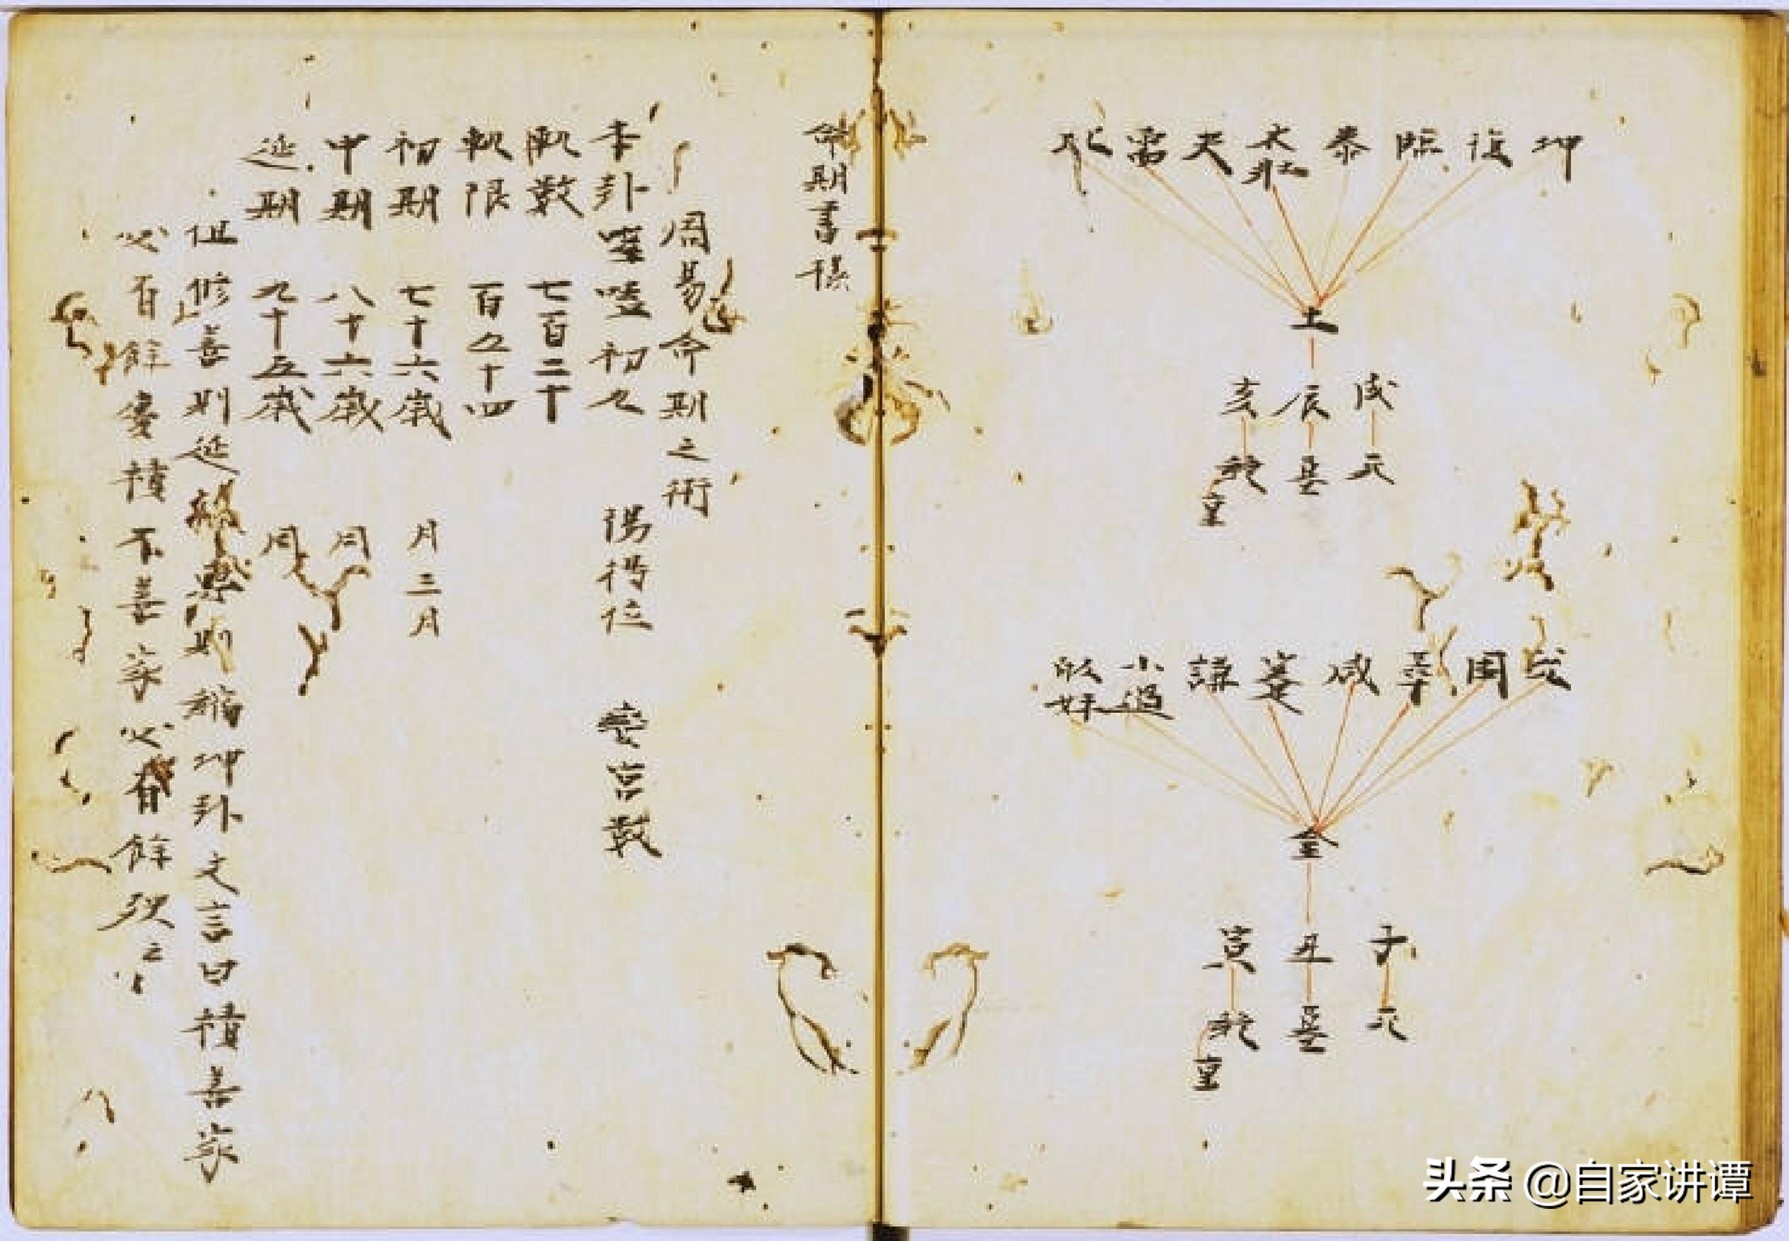 坤 復 臨 泰 大壮 夬 需 比
土
戌 辰 亥
皇
困 萃 咸 蹇 謙 小過 歸妹
金
子 丑 寅
皇
命期書様
周易命期之術
本卦噬嗑初九 陽得位
軌數 七百二十
軌限 百九十四
初期 七十六歲 月三月
中期 八十六歲 同
延期 九十五歲 同
但修善則延 悪則縮坤卦文言曰積善家
必有餘慶積不善家必有餘殃之
头条 @自家讲谭